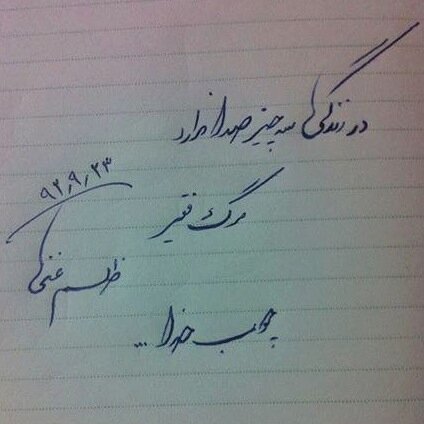 در زندگی سه چیز صدا ندارد
مرگ فقیر
ظلم غنی
چوب خدا ...
۹۲٫۹٫۲۳